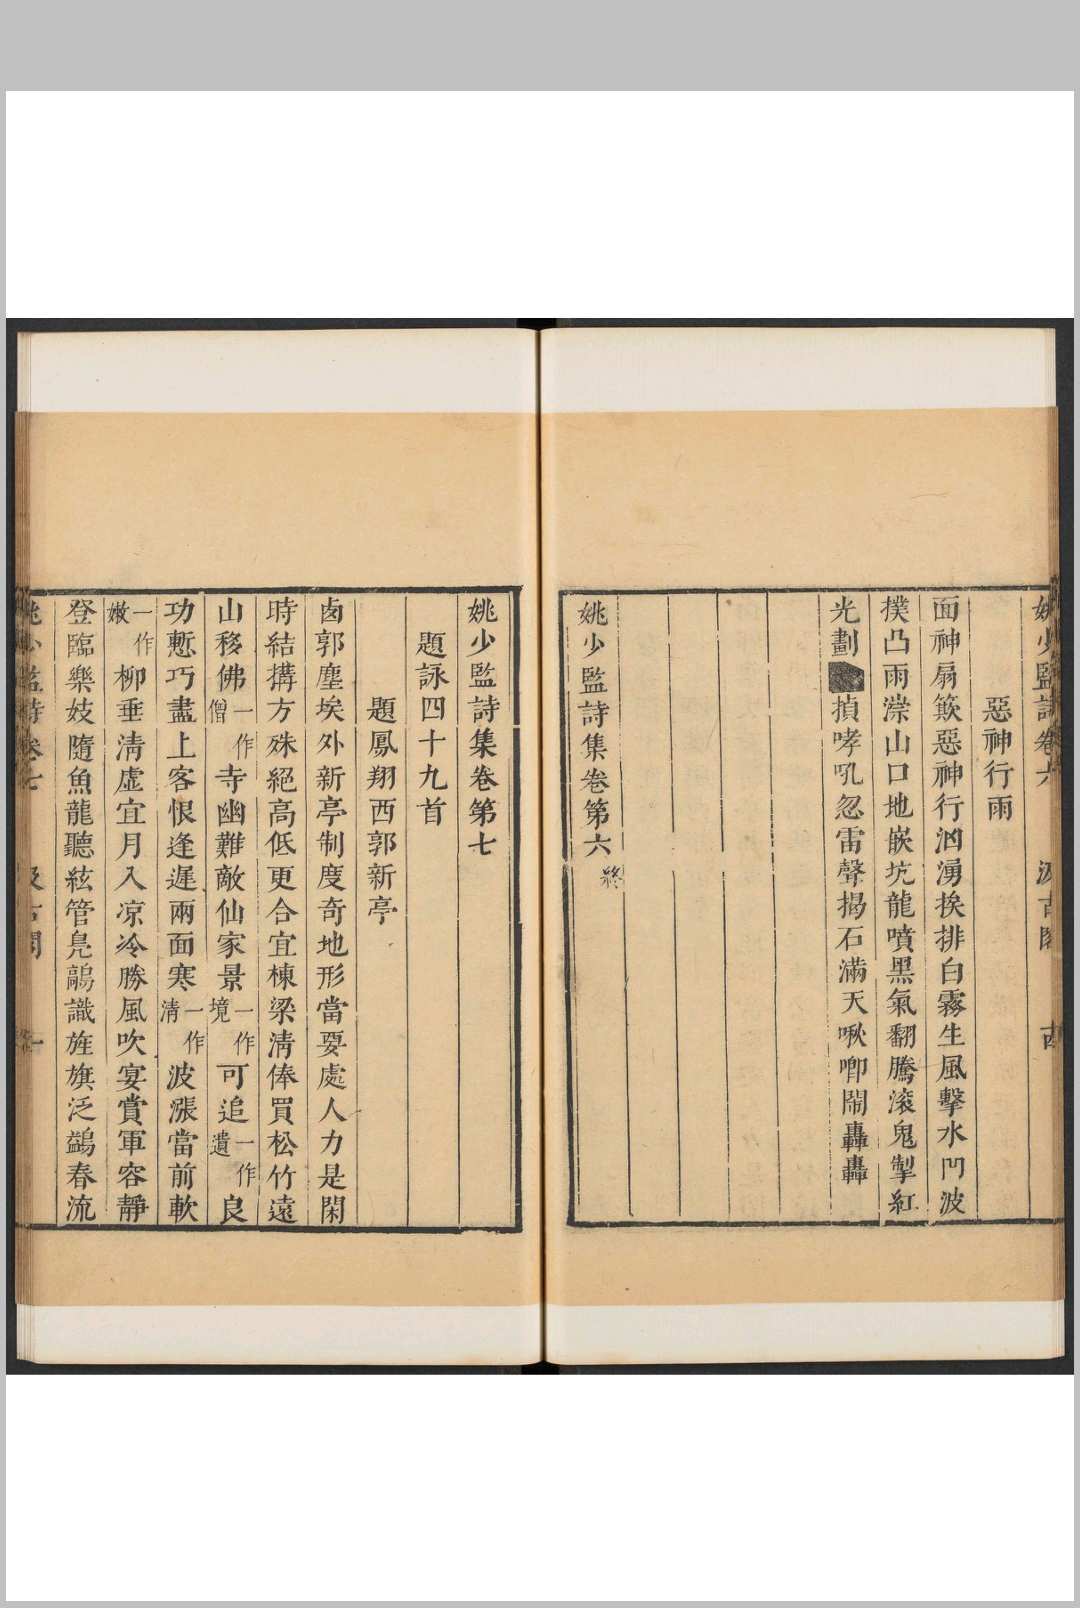 姚少監詩卷六　汲古閣
惡神行雨
面神扇簸惡神行洶湧挨排白霧生風擊水凹波
撲凸雨漴山口地嵌坑龍噴黑氣翻騰滾鬼掣紅
光劃　揁哮吼忽雷聲揭石滿天啾唧鬧轟轟
姚少監詩集卷第六 終
姚少監詩集卷第七
題詠四十九首
題鳳翔西郭新亭
鹵郭塵埃外新亭制度奇地形當要處人力是閑
時結搆方殊絕高低更合宜棟梁清俸買松竹遠
山移佛一作僧寺幽難敵仙家景一作境可追一作遺良
功慙巧盡上客恨逢遲兩面寒一作清波漲當前軟
一作嫩柳垂清虛宜月入凉冷勝風吹宴賞軍容靜
登臨樂妓隨魚龍聽絃管鳧鷸識旌旗泛鷁春流
姚少監詩卷七　汲古閣　一